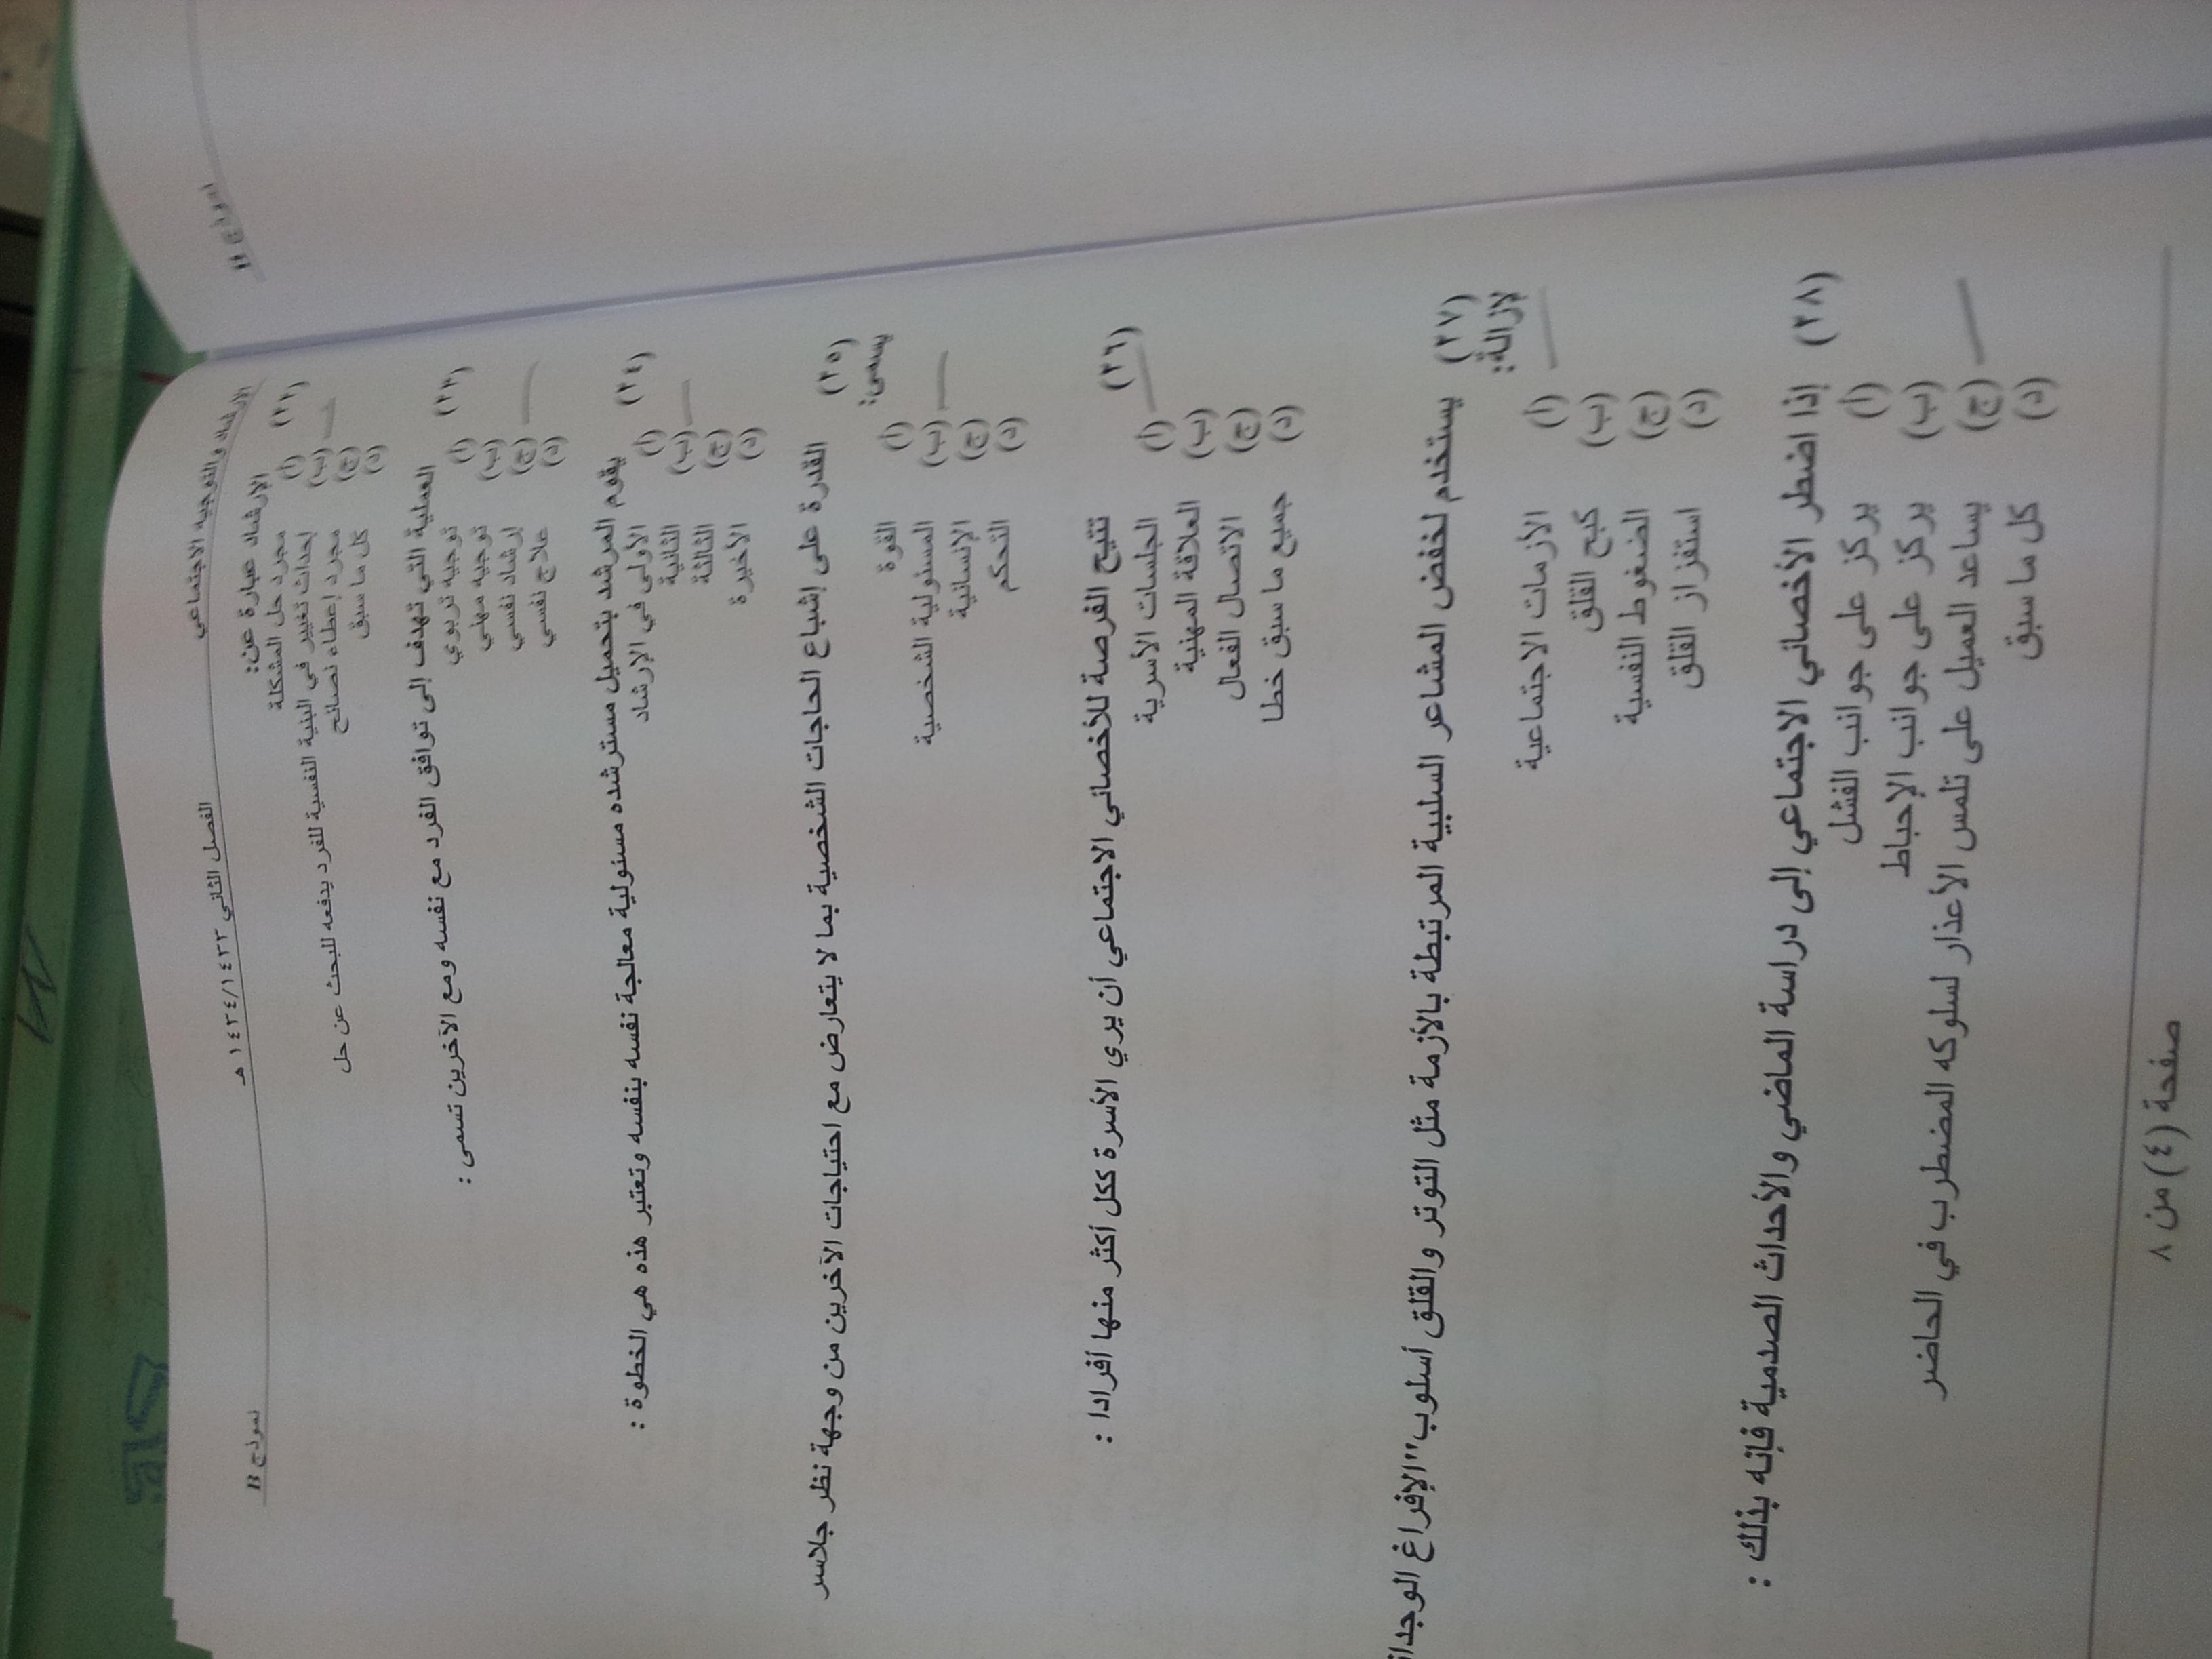 الإرشاد والتوجيه الاجتماعي الفصل الثاني ١٤٣٤/١٤٣٣ هـ نموذج B
(٢٢) الإرشاد عبارة عن:
(أ) مجرد حل المشكلة
(ب) إحداث تغيير في البنية النفسية للفرد يدفعه للبحث عن حل
(ج) مجرد إعطاء نصائح
(د) كل ما سبق
(٢٣) العملية التي تهدف إلى توافق الفرد مع نفسه ومع الآخرين تسمى :
(أ) توجيه تربوي
(ب) توجيه مهني
(ج) إرشاد نفسي
(د) علاج نفسي
(٢٤) يقوم المرشد بتحميل مسترشده مسئولية معالجة نفسه بنفسه وتعتبر هذه هي الخطوة :
(أ) الأولى في الإرشاد
(ب) الثانية
(ج) الثالثة
(د) الأخيرة
(٢٥) القدرة على إشباع الحاجات الشخصية بما لا يتعارض مع احتياجات الآخرين من وجهة نظر جلاسر
يسمى:
(أ) القوة
(ب) المسئولية الشخصية
(ج) الإنسانية
(د) التحكم
(٢٦) تتيح الفرصة للأخصائي الاجتماعي أن يري الأسرة ككل أكثر منها أفرادا :
(أ) الجلسات الأسرية
(ب) العلاقة المهنية
(ج) الاتصال الفعال
(د) جميع ما سبق خطا
(٢٧) يستخدم لخفض المشاعر السلبية المرتبطة بالأزمة مثل التوتر والقلق أسلوب"الإفراغ
لإزالة:
(أ) الأزمات الاجتماعية
(ب) كبح القلق
(ج) الضغوط النفسية
(د) استفزاز القلق
(٢٨) إذا اضطر الأخصائي الاجتماعي إلى دراسة الماضي والأحداث الصدمية فإنه بذلك :
(أ) يركز على جوانب الفشل
(ب) يركز على جوانب الإحباط
(ج) يساعد العميل على تلمس الأعذار لسلوكه المضطرب في الحاضر
(د) كل ما سبق
صفحة (٤) من ٨
نموذج B